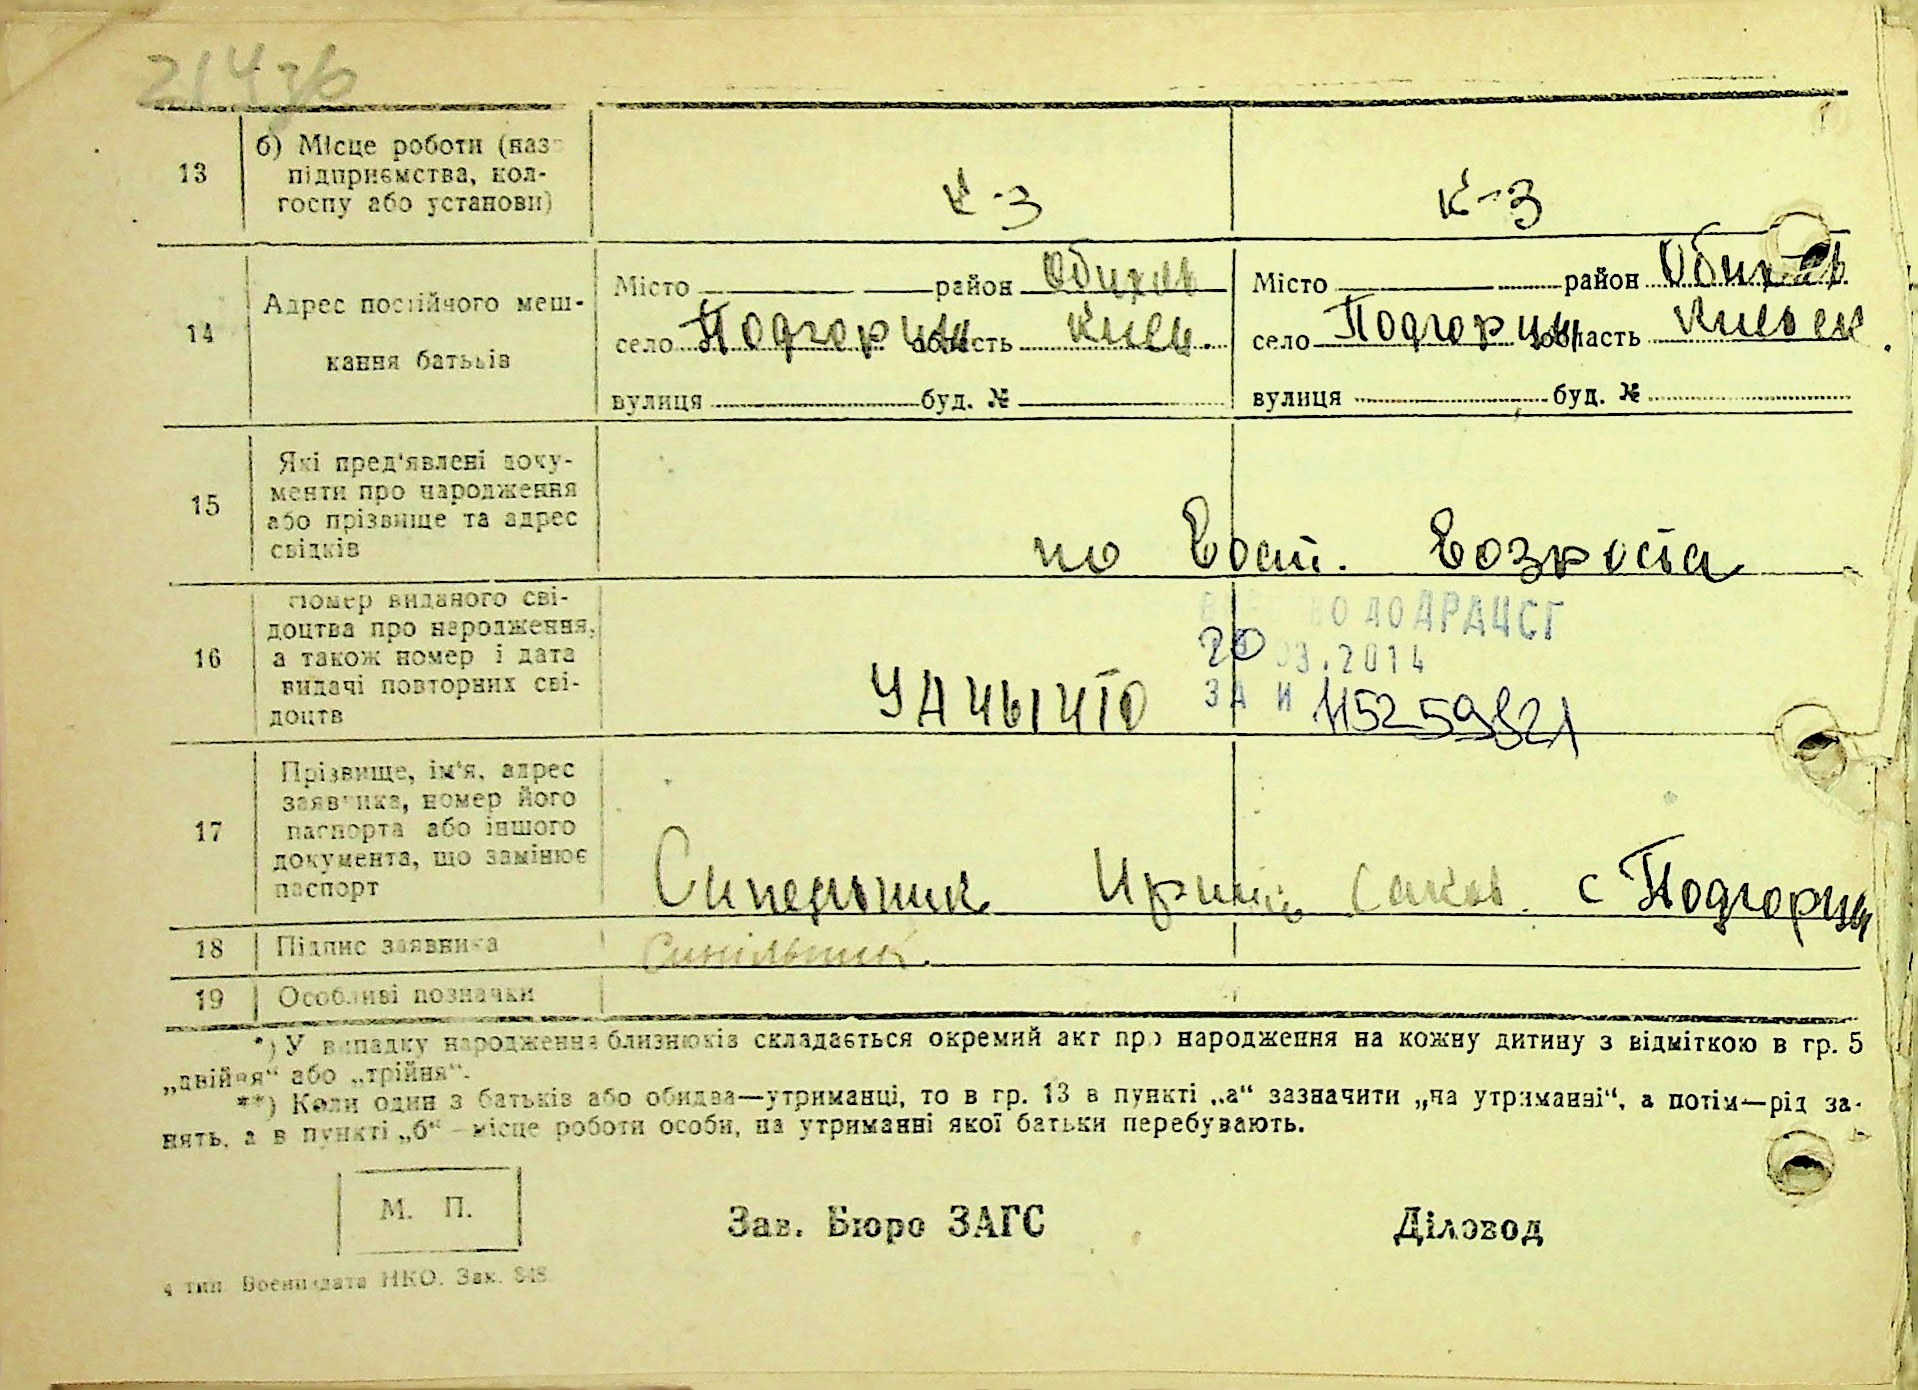 214зв
13 б) Місце роботи (наз
підприємства, кол-
госпу або установи)
К-З К-З
14 Адрес постійного меш-
кання батьків
Місто район Обухов Місто район Обухов
село Подгорцы область Киев. село Подгорцы область Киевск
вулиця буд. № вулиця буд. №
15 Які пред'явлені доку-
менти про народження
або прізвище та адрес
свідків
по возрста
16 Номер виданого сві-
доцтва про народження,
а також номер і дата
видачі повторних сві-
доцтв
ДРАЦСГ
20 03.2014
115259821
17 Прізвище, ім'я, адрес
заявника, номер його
паспорта або іншого
документа, що замінює
паспорт
Синельник с Подгорцы
18 Підпис заявника Синельник.
19 Особливі позначки
*) У випадку народження близнюків складається окремий акт про народження на кожну дитину з відміткою в гр. 5
„двійня“ або „трійня“.
**) Коли один з батьків або обидва—утриманці, то в гр. 13 в пункті „а“ зазначити „на утриманні“, а потім—рід за-
нять, а в пункті „б“ —місце роботи особи, на утриманні якої батьки перебувають.
М. П.
Зав. Бюро ЗАГС Діловод
4 тип. Воениздата НКО. Зак. 848